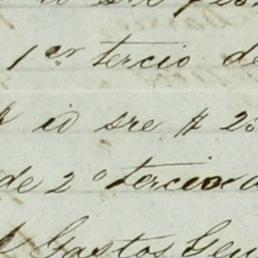 1er tercio de
id sre # 20
de 2o tercio d
Gastos Gen